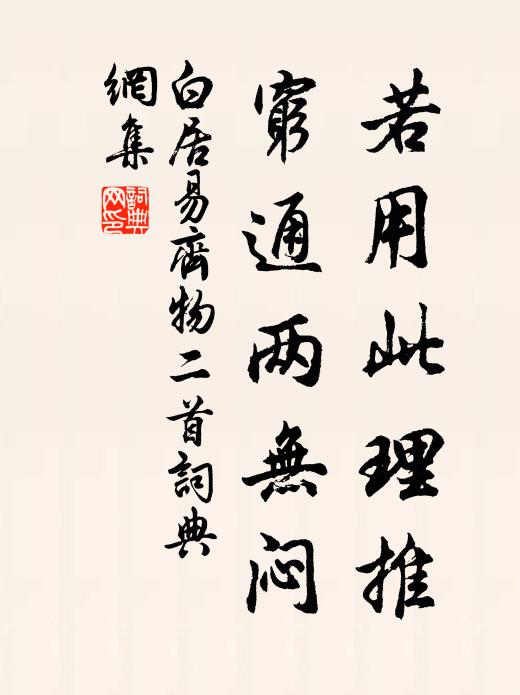 若用此理推
窮通两無闷
白居易齊物二首詞典
網集
詞典
网印